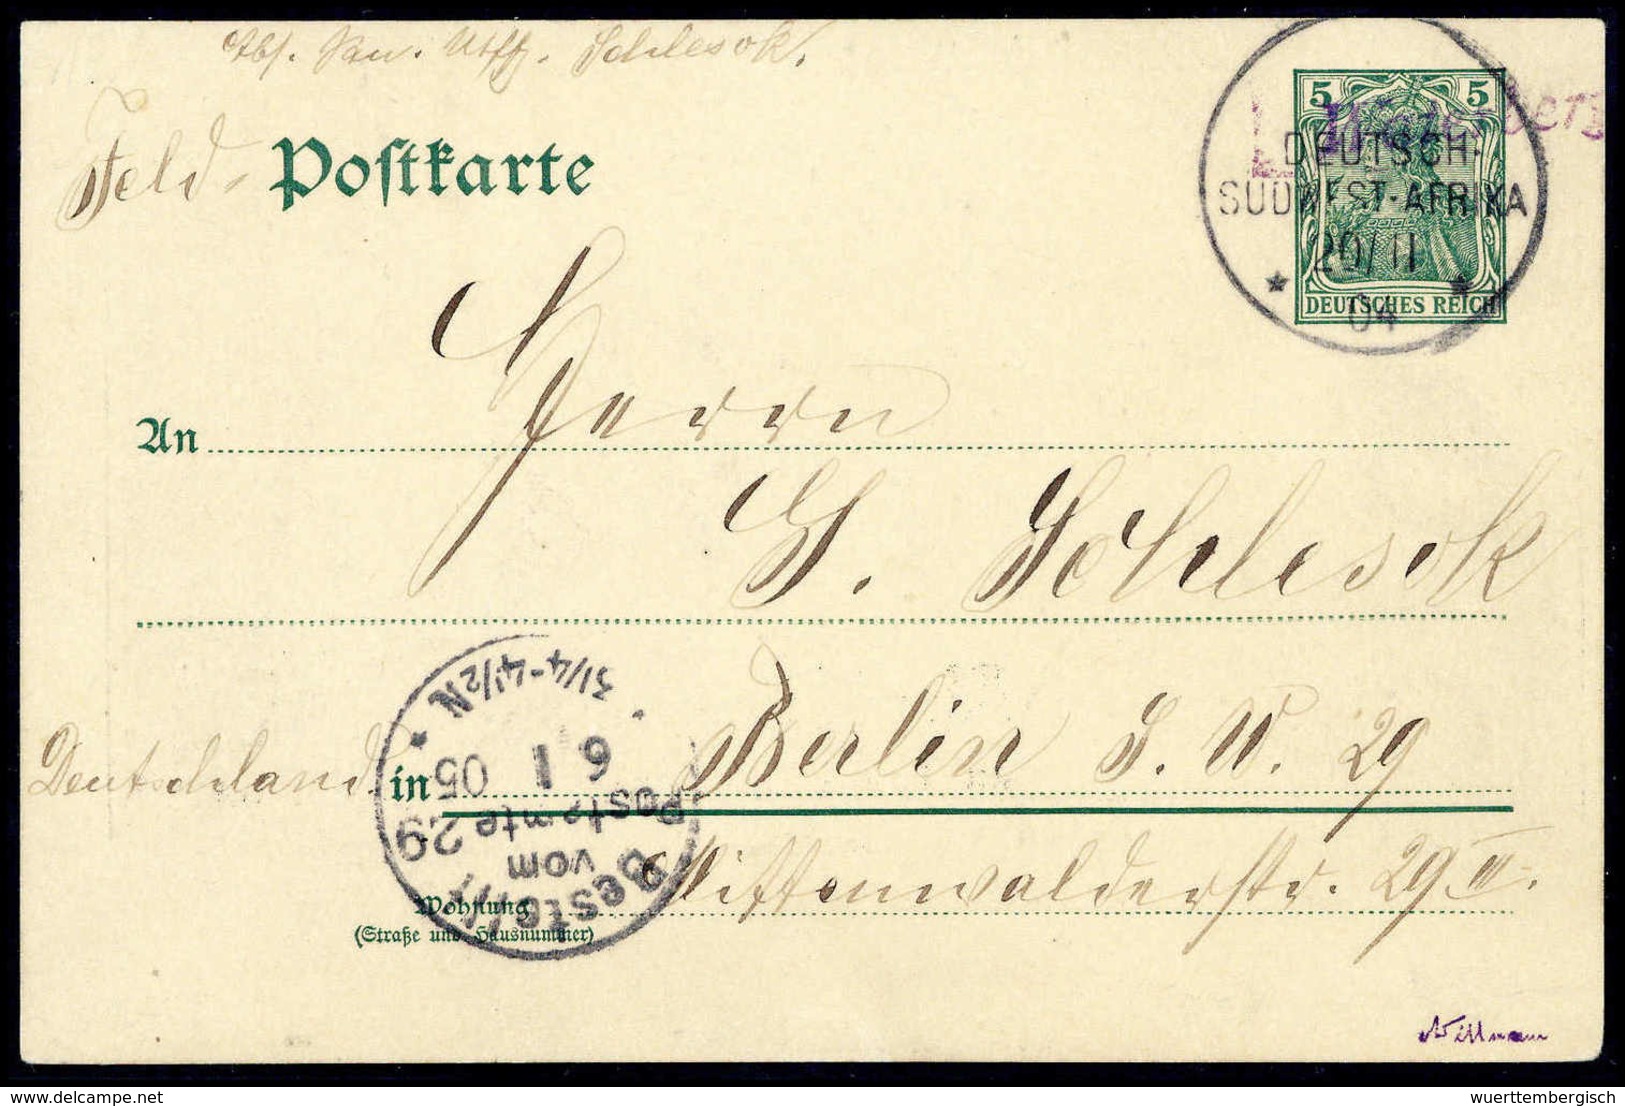 Abs. San. Utffz. Schlesok.
5 5
Feld- Postkarte
DEUTSCH-
SÜDWEST-AFRIKA
29/11
04
DEUTSCHES REICH
An Herrn
G. Schlesok
Deutschland. in Berlin S. W. 29
Wohnung Mittenwalderstr. 29 III.
(Straße und Hausnummer)
Bestellt
vom
Postamte 29
6 1 05
3 1/4-4 1/2 N
Willmann
wuerttembergisch